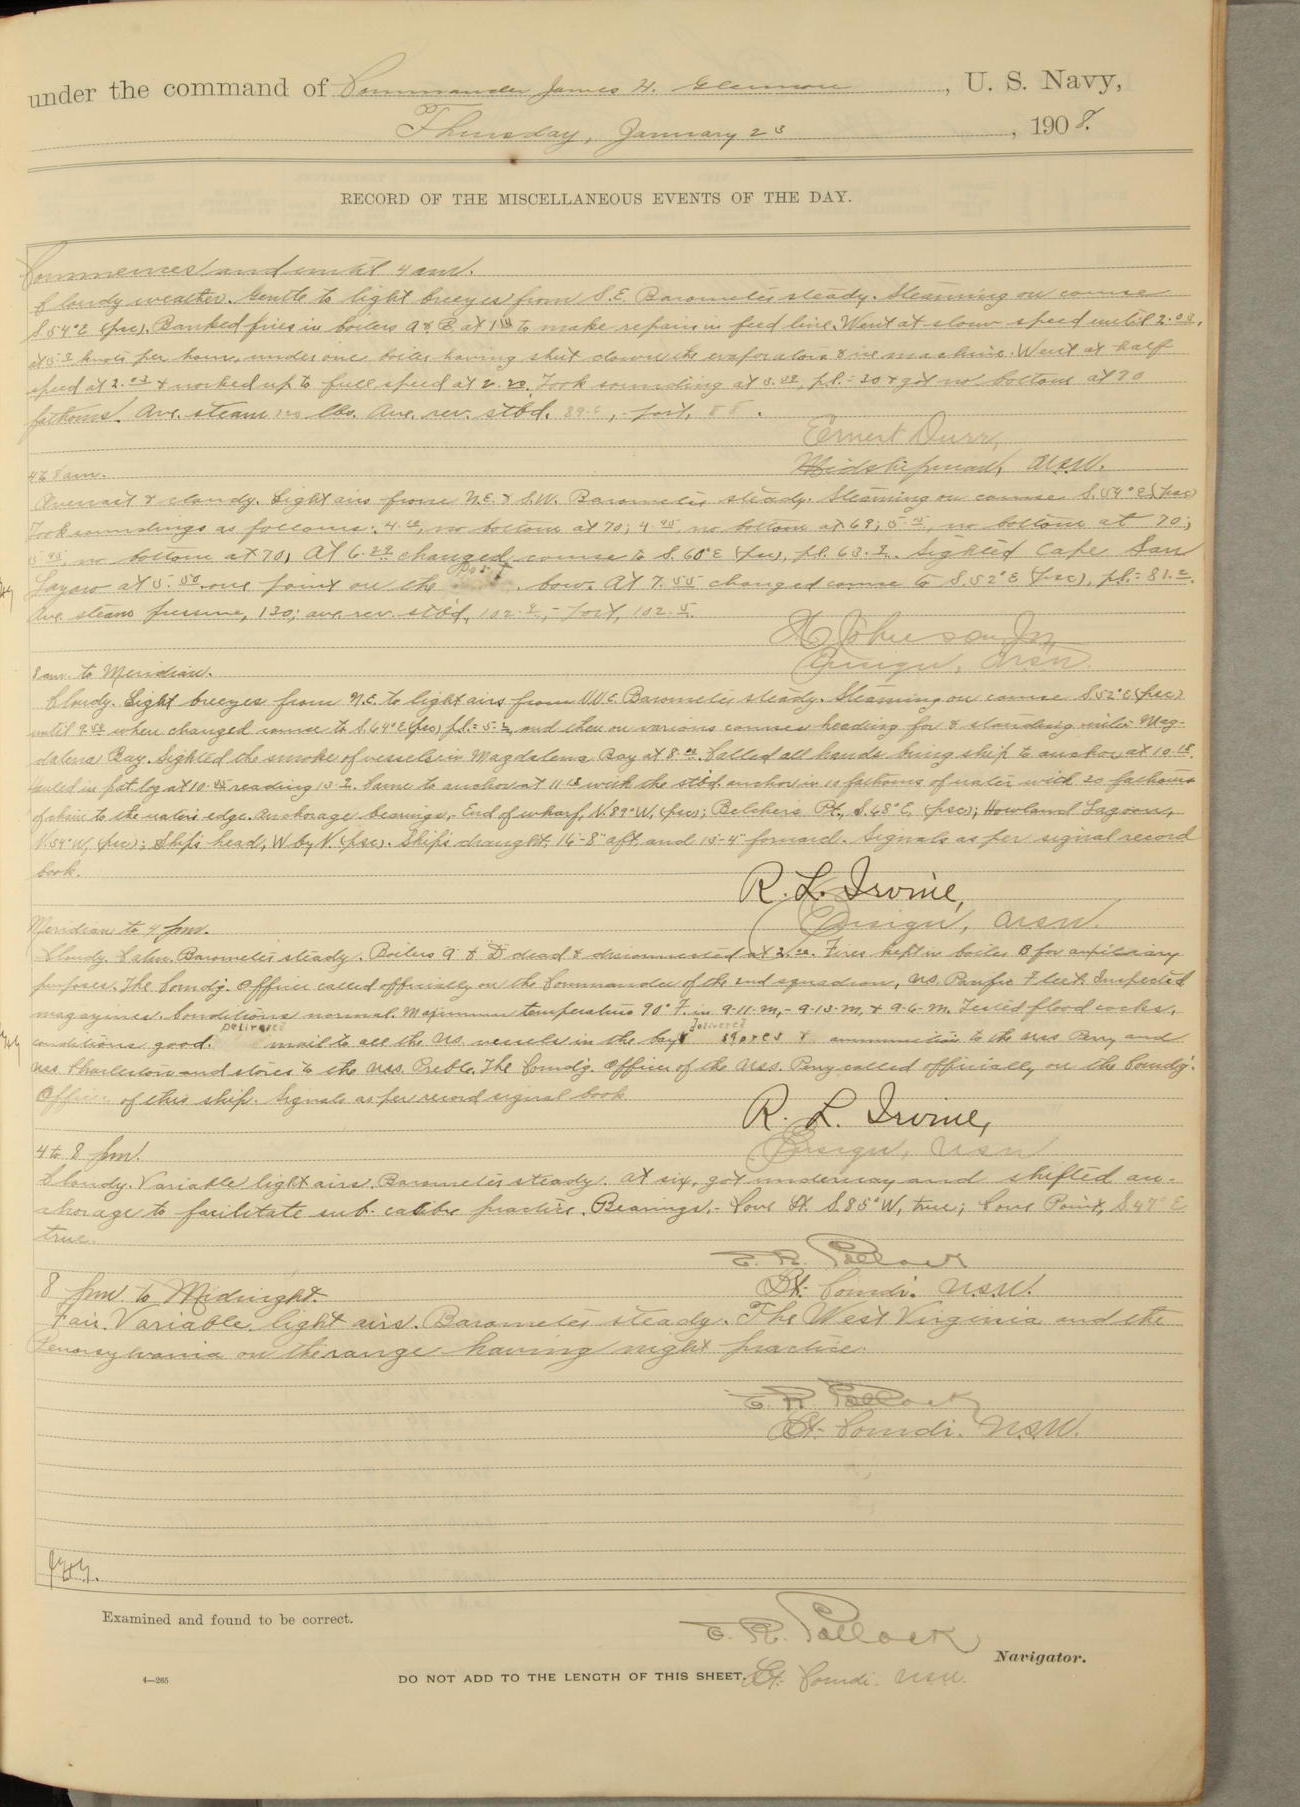 under the command of Commander James H. Glennon, U. S. Navy,
Thursday, January 23, 1908.
RECORD OF THE MISCELLANEOUS EVENTS OF THE DAY.
Commences and until 4 am.
Cloudy weather. Gentle to light breezes from S.E. Barometer steady. Steaming on course
S 54° E (psc). Banked fires in boilers A & B at to make repairs in feed line. Went at slow speed until
knots per hour, under one boiler having shut down the evaporators & ice machine. Went at half
speed at 2.03 & worked up to full speed at 2.20. Took sounding at p.l. - 30 & got no bottom at 70
fathoms. Ave. steam lbs. Ave. rev. stbd. port,
Ernest Durr,
Midshipman, U.S.N.
4 to 8 am.
Overcast & cloudy. Light airs from N.E. & S.W. Barometer steady. Steaming on course S. 54° E (psc)
Took soundings as follows: no bottom at 70; 4 45 no bottom at 69; no bottom at 70;
no bottom at 70, At 6.20 changed course to S. 60° E (psc), p.l. 63. Sighted Cape San
Lazaro at 5.50 one point on the port bow. At 7.55 changed course to S. 52° E (psc), p.l. = 81.
Ave. steam pressure, 130; ave. rev. stbd, port, 102.5.
Johnson Jr,
Ensign, U.S.N.
8 am. to Meridian.
Cloudy. Light breezes from N.E. to light airs from Barometer steady. Steaming on course S 52° E (psc)
until when changed course to S. 64° E (psc) p.l. = and then on various courses heading for & standing into Mag-
dalena Bay. Sighted the smoke of vessels in Magdalena Bay at 8. Called all hands bring ship to anchor at 10.15.
Hauled in pat. log at 10.45 reading Came to anchor at 11.15 with the stbd. anchor in 10 fathoms of water with 30 fathoms
of chain to the water's edge. Anchorage bearings, End of wharf, N. 89° W, (psc); Belchers Pt., S. 68° E, (psc); Howland Lagoon,
N. 54° W, (psc); Ship's head, W by N. (psc). Ship's draught, 16'-8" aft and 15'-4" forward. Signals as per signal record
book.
R. L. Irvine,
Ensign, U.S.N.
Meridian to 4 pm.
Cloudy. Calm. Barometer steady. Boilers A & D dead & disconnected at Fires kept in boiler B for auxiliary
purposes. The Comdg. Officer called officially on the Commander of the 2nd squadron, U.S. Pacific Fleet. Inspected
magazines. Conditions normal. Maximum temperature 90° F. in 9-11-m, - 9-13-m, & 9-6-m. Tested flood cocks,
conditions good. Delivered mail to all the U.S. vessels in the bay. Delivered stores & ammunition to the U.S.S. Perry and
U.S.S. Charleston and stores to the U.S.S. Preble. The Comdg. Officer of the U.S.S. Perry called officially on the Comdg.
Officer of this ship. Signals as per record signal book.
R. L. Irvine,
Ensign, U.S.N.
4 to 8 pm.
Cloudy. Variable light airs. Barometer steady. At six, got underway and shifted an-
chorage to facilitate sub. calibre practice. Bearings,- Cove Pt. S. 85° W, true; Cove Point, S. 47° E
true.
E. R. Pollock
Lt. Comdr. U.S.N.
8 pm. to Midnight.
Fair. Variable light airs. Barometer steady. The West Virginia and the
Pennsylvania on the range having night practice.
E. R. Pollock
Lt. Comdr. U.S.N.
JHG.
Examined and found to be correct.
E. R. Pollock
Navigator.
4—265
DO NOT ADD TO THE LENGTH OF THIS SHEET.
Lt. Comdr. U.S.N.